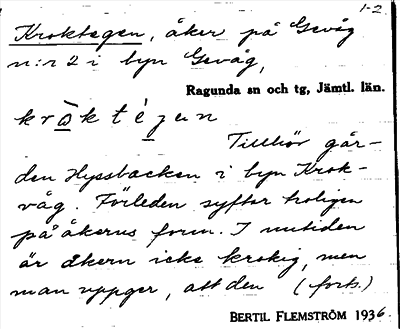 1-2.
Kroktegen, åker på Gevåg
n:r 2 i byn Gevåg,
Ragunda sn och tg, Jämtl. län.
Tillhör går-
den Hyssbacken i byn Krok-
våg. Förleden syftar troligen
på åkerns form. I nutiden
är åkern icke krokig, men
man uppger, att den (forts.)
BERTIL FLEMSTRÖM 1936.